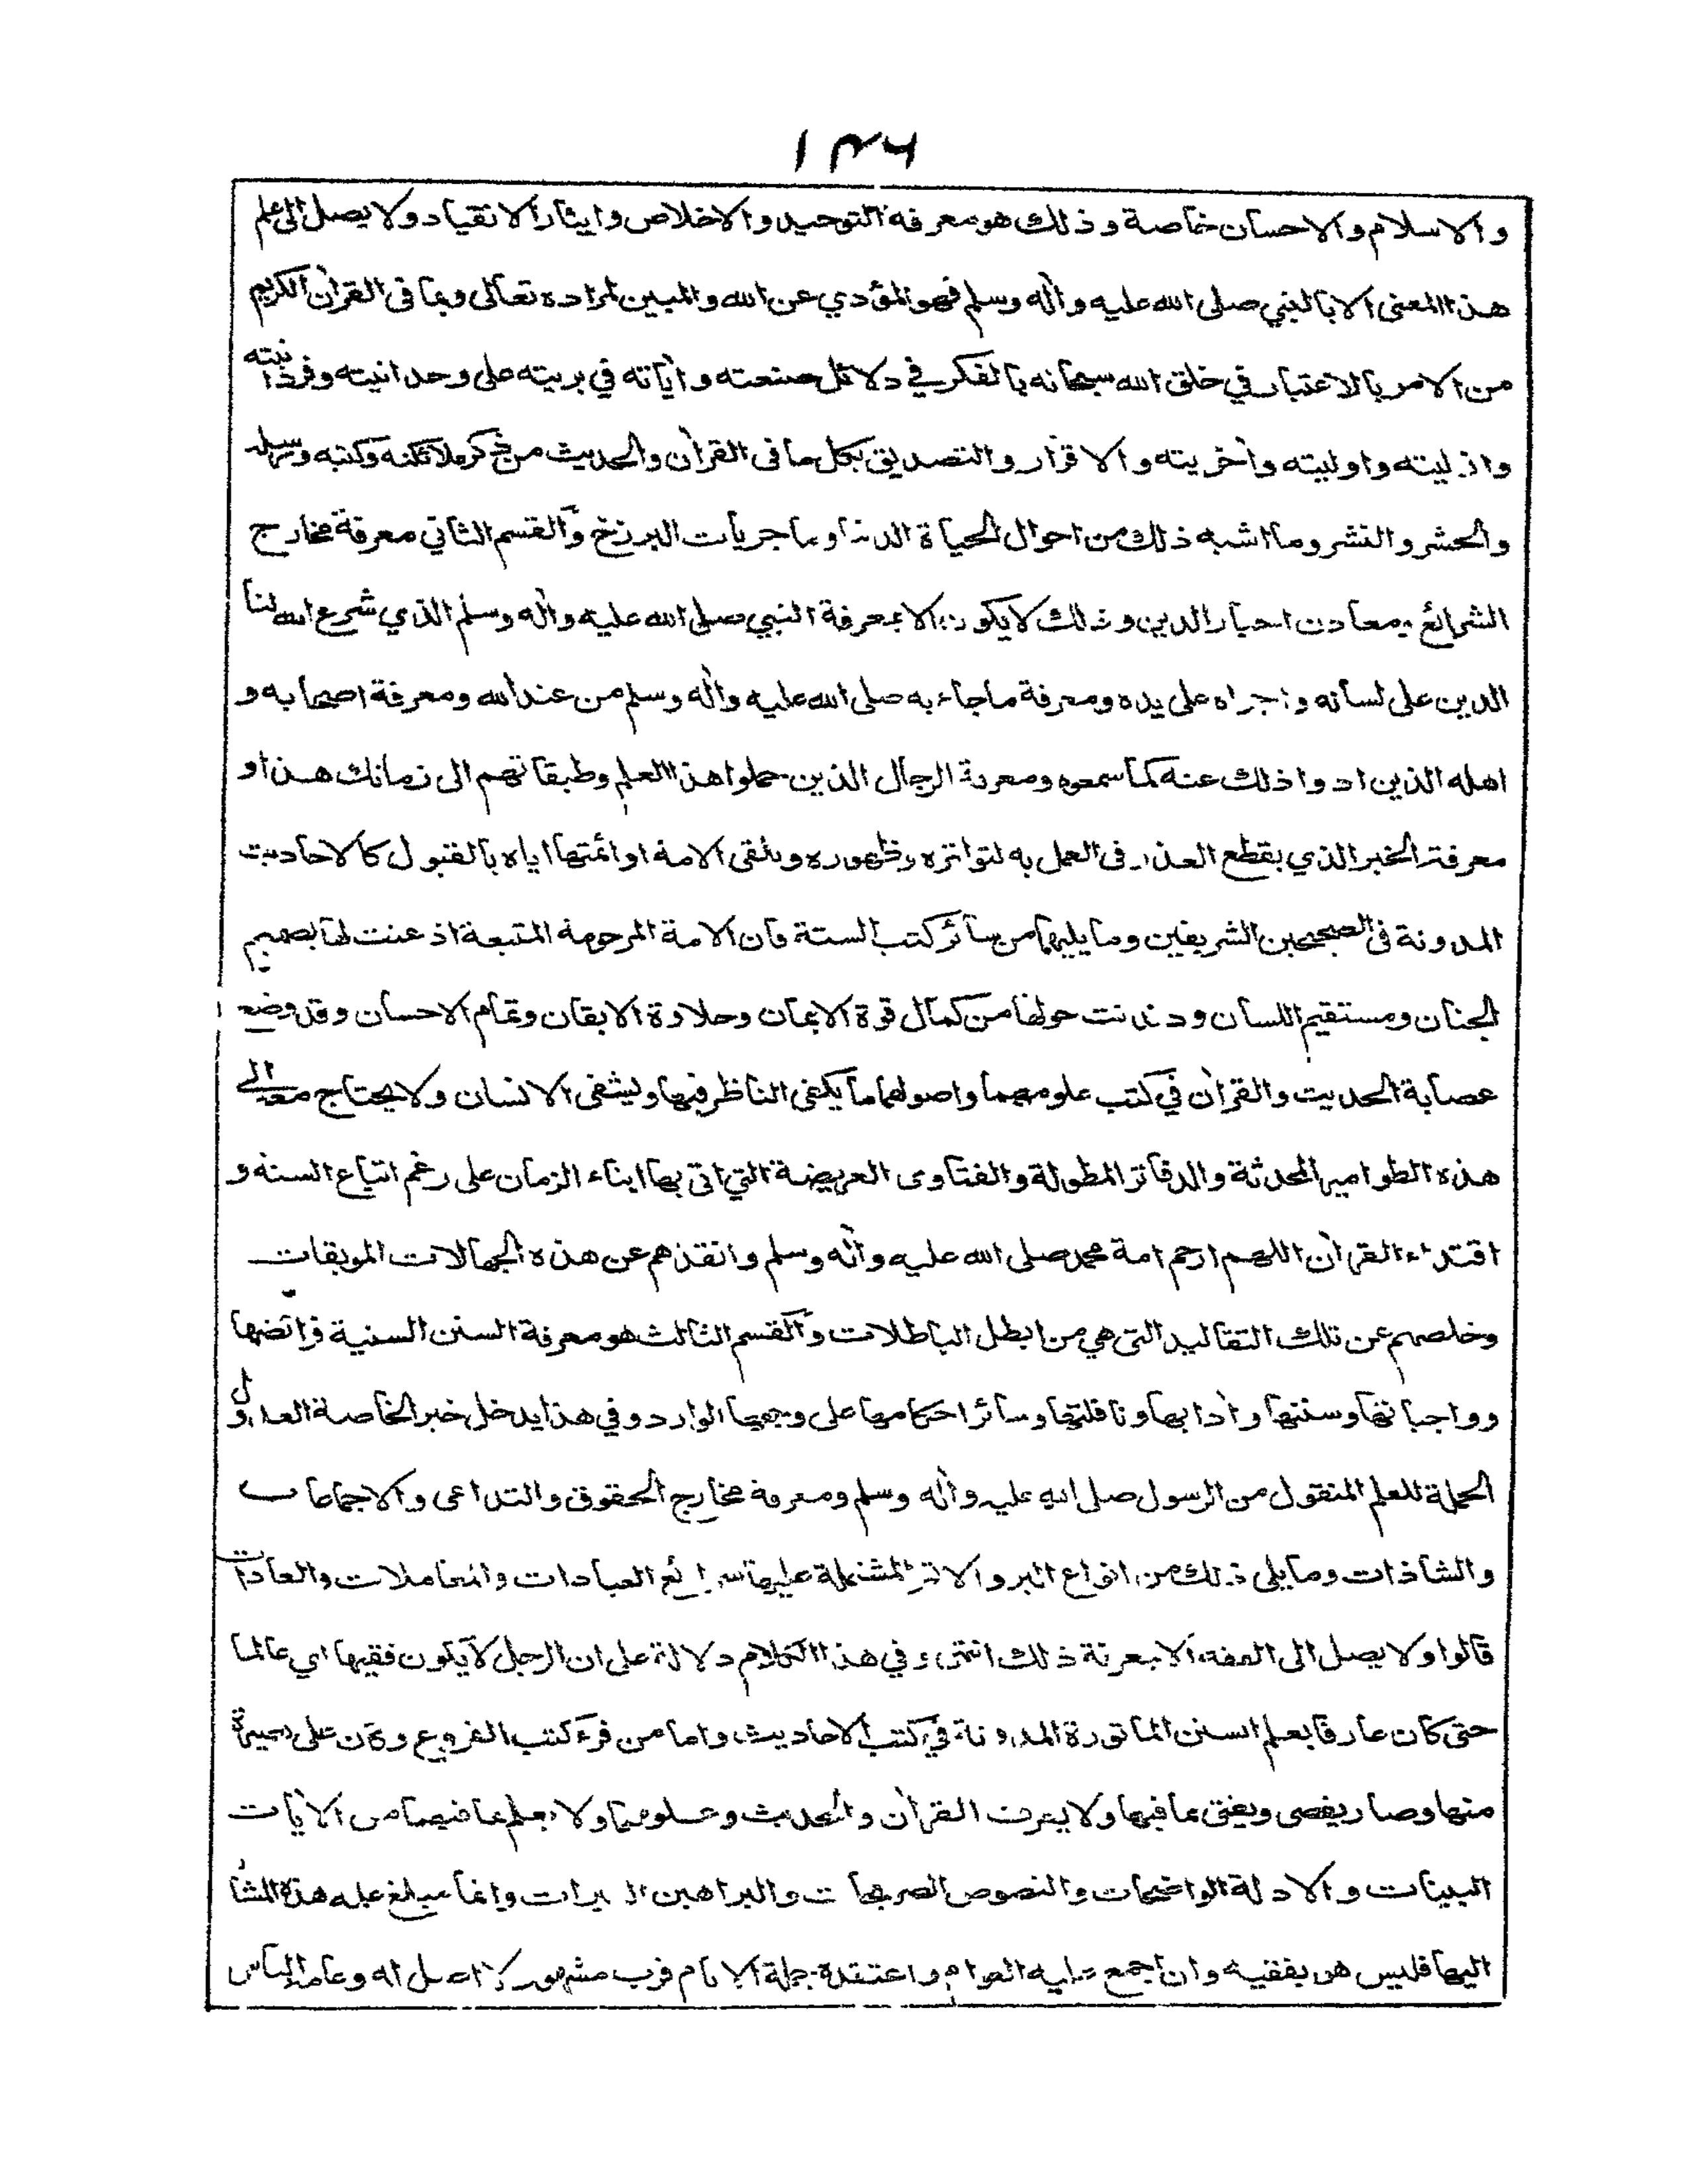 ١٣٦
والاسلام والاحسان خاصة وذلك هو معرفة التوحيد والاخلاص وايثار الانقياد ولا يصل الى علم
هذا المعنى الا بالنبي صلى الله عليه وآله وسلم فهو المؤدي عن الله والمبين لمراده تعالى وبما فى القرآن الكريم
من الامر بالاعتبار في خلق الله سبحانه بالفكر في دلائل صنعته وآياته في بريته على وحدانيته وفردانيته
وازليته واوليته وآخريته والاقرار والتصديق بكل ما فى القرآن والحديث من ذكر ملائكته وكتبه ورسله
والحشر والنشر وما اشبه ذلك من احوال الحياة الدنيا وماجريات البرزخ والقسم الثاني معرفة مخارج
الشرائع ومعادن احبار الدين وذلك لا يكون الا بمعرفة النبي صلى الله عليه وآله وسلم الذي شرع الله لنا
الدين على لسانه واجراه على يده ومعرفة ما جاء به صلى الله عليه وآله وسلم من عند الله ومعرفة اصحابه و
اهله الذين ادوا ذلك عنه كما سمعوه ومعرفة الرجال الذين حملوا هذا العلم وطبقاتهم الى زمانك هذا و
معرفة الخبر الذي يقطع العذر فى العمل به لتواتره وظهوره وتلقى الامة او ائمتها اياه بالقبول كالاحاديث
المدونة فى الصحيحين الشريفين وما يليهما من سائر كتب الستة فان الامة المرحومة المتبعة اذعنت لها بصميم
الجنان ومستقيم اللسان ودندنت حولها من كمال قوة الايمان وحلاوة الايقان وتمام الاحسان وقد وضع
عصابة الحديث والقرآن في كتب علومهما واصولهما ما يكفى الناظر فيها ويشفى الانسان ولا يحتاج معها الى
هذه الطوامير المحدثة والدفاتر المطولة والفتاوى العريضة التي اتى بها ابناء الزمان على رغم اتباع السنة و
اقتداء القرآن اللهم ارحم امة محمد صلى الله عليه وآله وسلم وانقذهم عن هذه الجهالات الموبقات
وخلصهم عن تلك التقاليد التى هي من ابطل الباطلات والقسم الثالث هو معرفة السنن السنية فرائضها
وواجباتها وسننها وآدابها ونافلتها وسائر احكامها على وجهها الوارد وفي هذا يدخل خبر الخاصة العدول و
الحملة للعلم المنقول من الرسول صلى الله عليه وآله وسلم ومعرفة مخارج الحقوق والتداعى والاجماعات
والشاذات وما يلى ذلك من انواع البر والاثم المشتملة عليها شرائع العبادات والمعاملات والعادات
قالوا ولا يصل الى الفقه الا بمعرفة ذلك انتهى وفي هذا الكلام دلالة على ان الرجل لا يكون فقيها اي عالما
حتى كان عارفا بعلم السنن الماثورة المدونة في كتب الاحاديث واما من قرء كتب الفروع وكان على بصيرة
منها وصار يقضى ويفتى بما فيها ولا يعرف القرآن والحديث وعلومهما ولا يعلم ما فيهما من الآيات
البينات والادلة الواضحات والنصوص الصريحات والبراهين وانما مبلغ علمه هذه المشار
اليها فليس هو بفقيه وان اجمع عليه العوام واعتقده جملة الانام فرب مشهور لا اصل له وعامة الناس